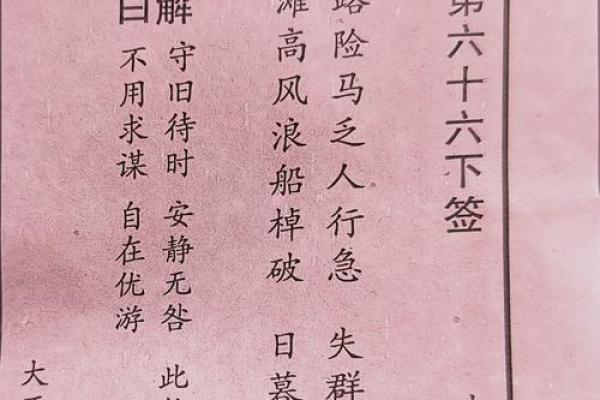 第六十六下签
路险马乏人行急 失群
滩高风浪船棹破 日暮
解 守旧待时 安静无咎 此
曰 不用求谋 自在优游
大